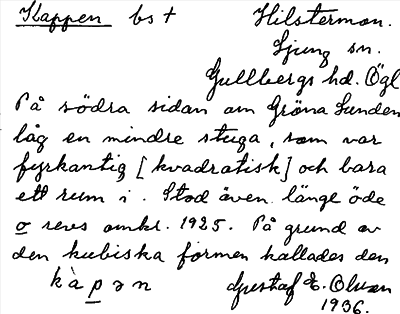 Kappen bs † Hilstermon.
Ljung sn.
Gullbergs hd. Ögl
På södra sidan om Gröna Lunden
låg en mindre stuga, som var
fyrkantig [kvadratisk] och bara
ett rum i. Stod även länge öde
o revs omkr. 1925. På grund av
den kubiska formen kallades den
kàpən Gustaf E. Olsson
1936.